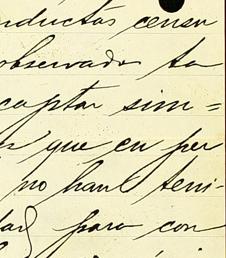 nductas censu
observados ta
captar sim=
s que en per
no han teni-
dad para con